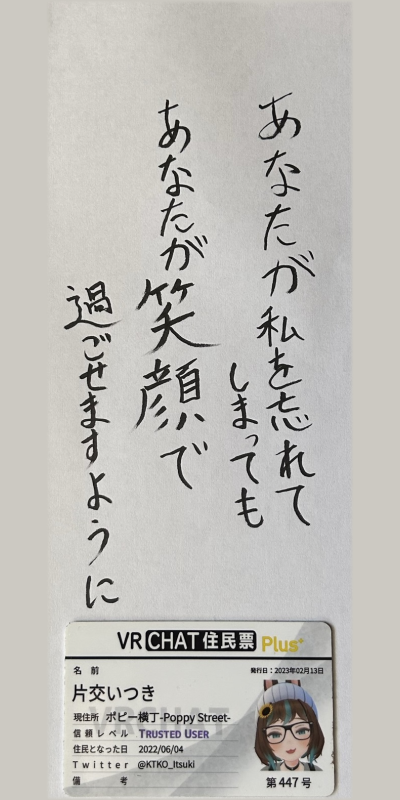 あなたが私を忘れて
しまっても
あなたが笑顔で
過ごせますように
VRCHAT住民票 Plus+
名前
発行日：2023年02月13日
片交いつき
現住所 ポピー横丁-Poppy Street-
信頼レベル TRUSTED USER
住民となった日 2022/06/04
Twitter @KTKO_Itsuki
備考
第447号